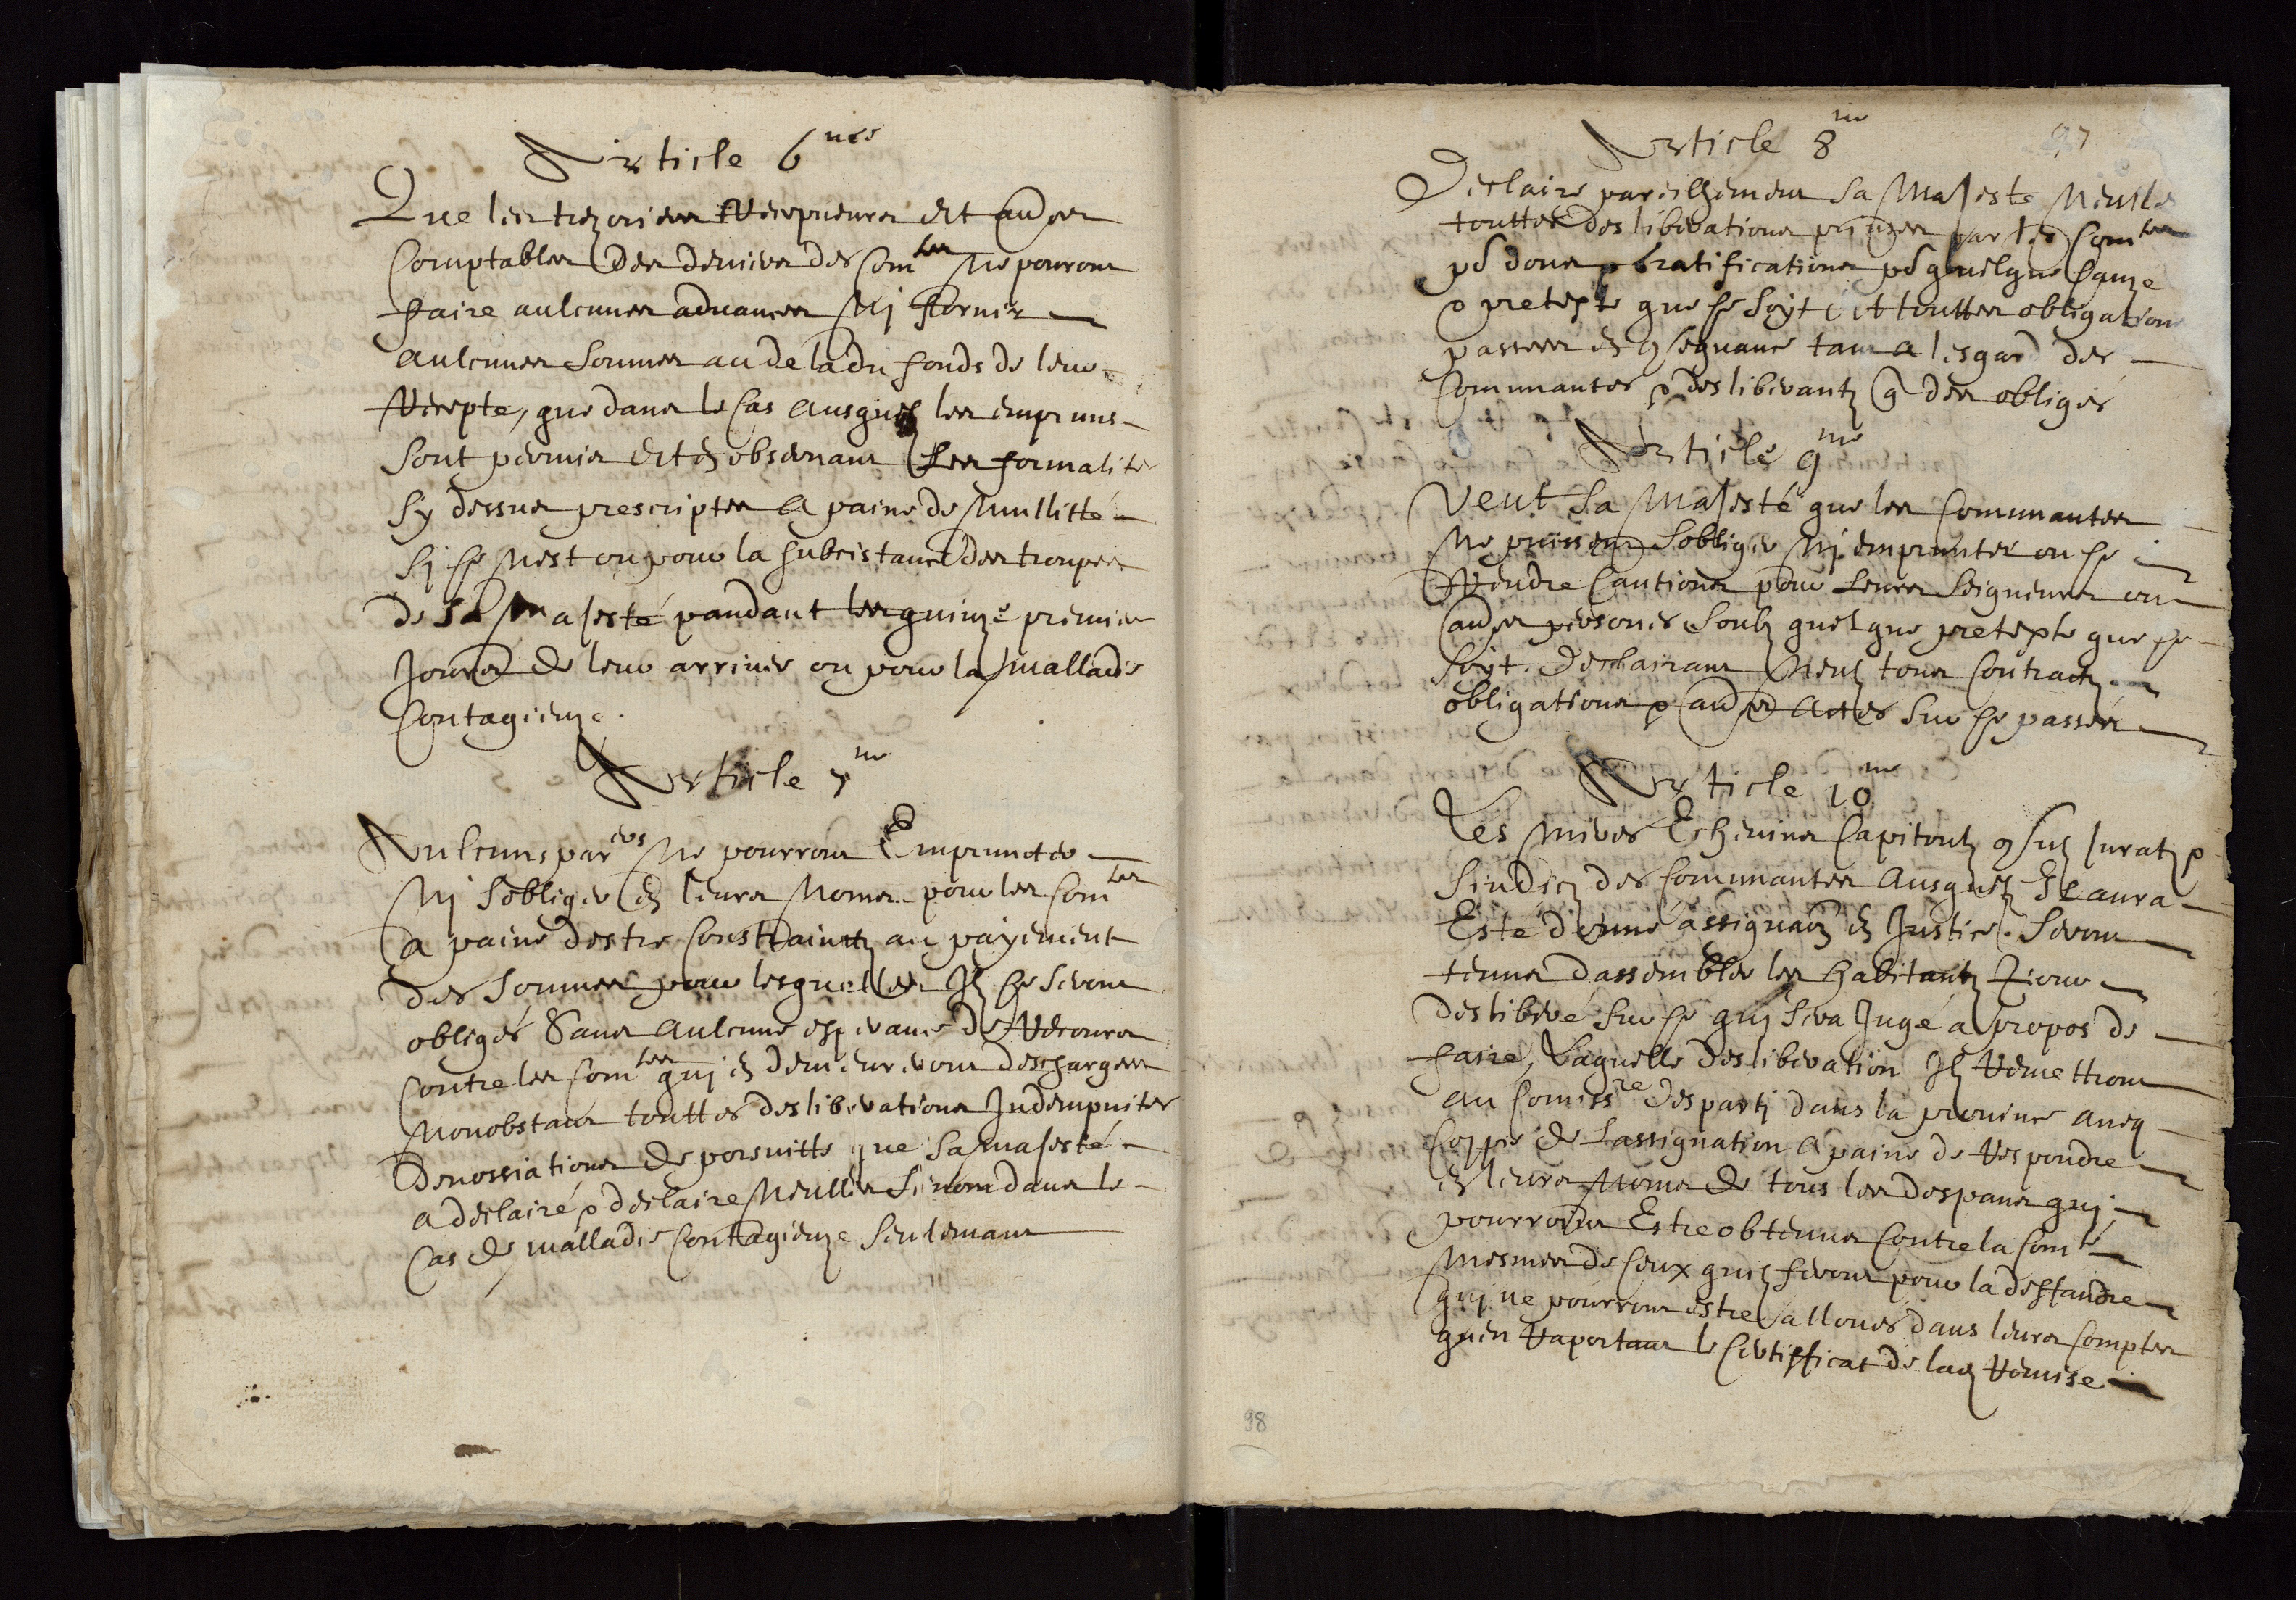 Article 6me
Que les trezoriers Recepveurs Et aud.es
Comptables des deniers des Comtes Ne pourront
faire aulcunes advances Nj fornir
aulcunes sommes au dela du fonds de leur
Recepte, que dans le Cas Ausquels les empruns
sont permis Et en observant Les formalites
sy dessus prescriptes A paine de Nullitté
sj se Nest ou pour la subcistance des troupes
de Sa Majesté pandant les quinze premiers
Jours de leur arrivee ou pour la malladie
Contagieuze.
Article 7me
Aulcuns par.ers Ne pourront Empruncter
Nj sobliger En leurs Noms pour les Comtes
a paine destre Constrainctz au payement
des sommes pour lesquelles Ilz se seront
obliges Sans aulcune esperance de Recours
Contre les Comtes quj en demeureront descharges
Nonobstant touttes deslibérations Indempnites
denossiations de porsuitte que Sa Majesté
a declairé & declaire Nulles sinon dans le
Cas de malladie Contagieuze seulemant
97
Article 8me
Declaire pareilhement Sa Majeste Nulle
touttes deslibérations prinzes par les Comtes
pr dons & Gratifications pr quelque cauze
& pretexte que se soyt Et touttes obligations
passees en consequance tant a lesgard des
Communautes & deslibérants que des obliges
Article 9me
Veut Sa Majesté que les Communautes
Ne puissent sobliger Nj emprunter ou se
Rendre Cautions pour Leurs Seigneurs ou
aud.es persones Soubz quelque pretexte que se
soyt. Desclairant Nulz tous Contractz
obligations & aud.es Actes sur se passés
Article 10me
Les Maires Echevins Capitoulz consulz Juratz &
Sindicz des Communautes Ausquelz Il aura
Esté donné assignaon en Justice. Seront
tenus dassembler les habitants pour
deslibéré sur se quj sera Jugé a propos de
faire, Laquelle deslibération Ilz Remettront
au Comissre desparti dans la province aveq
Coppie de Lassignation A paine de Respondre
en leurs Noms de tous les despans quj
pourroint Estre obtenus Contre la Comté
Mesmes de ceux quilz feront pour la deffandre
quj ne pourront estre alloués dans leurs Comptes
quen Raportant le Certifficat de lad Remise
98